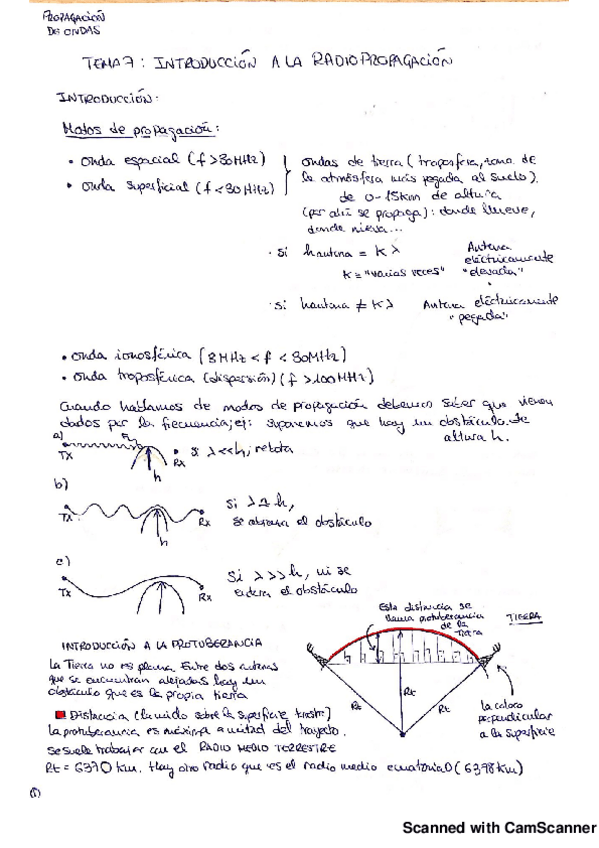 PROPAGACIÓN
DE ONDAS
TEMA 7: INTRODUCCIÓN A LA RADIOPROPAGACIÓN
INTRODUCCIÓN:
Modos de propagación:
• onda espacial (f > 30MHz)
• onda superficial (f < 30MHz)
ondas de tierra (troposfera, zona de
la atmósfera más pegada al suelo).
de 0-15km de altura
(por ahí se propaga): donde llueve,
donde nieva...
· si hantena = K λ
K = "varias veces"
Antena
eléctricamente
"elevada"
· si hantena ≠ K λ
Antena eléctricamente
"pegada"
• onda ionosférica (3MHz < f < 30MHz)
• onda troposférica (dispersión) (f > 100MHz)
Cuando hablamos de modos de propagación debemos saber que vienen
dados por la frecuencia, ej: suponemos que hay un obstáculo de
altura h.
a)
Tx
Rx
h
si λ << h, rebota
b)
Tx
Rx
h
si λ ≥ h,
se abraza el obstáculo
c)
Tx
Rx
Si λ >>> h, ni se
entera el obstáculo
INTRODUCCIÓN A LA PROTUBERANCIA
La Tierra no es plana. Entre dos antenas
que se encuentran alejadas hay un
obstáculo que es la propia tierra
Distancia (la mido sobre la superficie terrestre)
La protuberancia es máxima a mitad del trayecto.
se suele trabajar con el RADIO MEDIO TERRESTRE
Rt = 6370 km. Hay otro radio que es el radio medio ecuatorial (6378km)
Esta distancia se
llama protuberancia
de la
Tierra
TIERRA
Rt
Rt
Rt
La coloco
perpendicular
a la superficie
(1)
Scanned with CamScanner